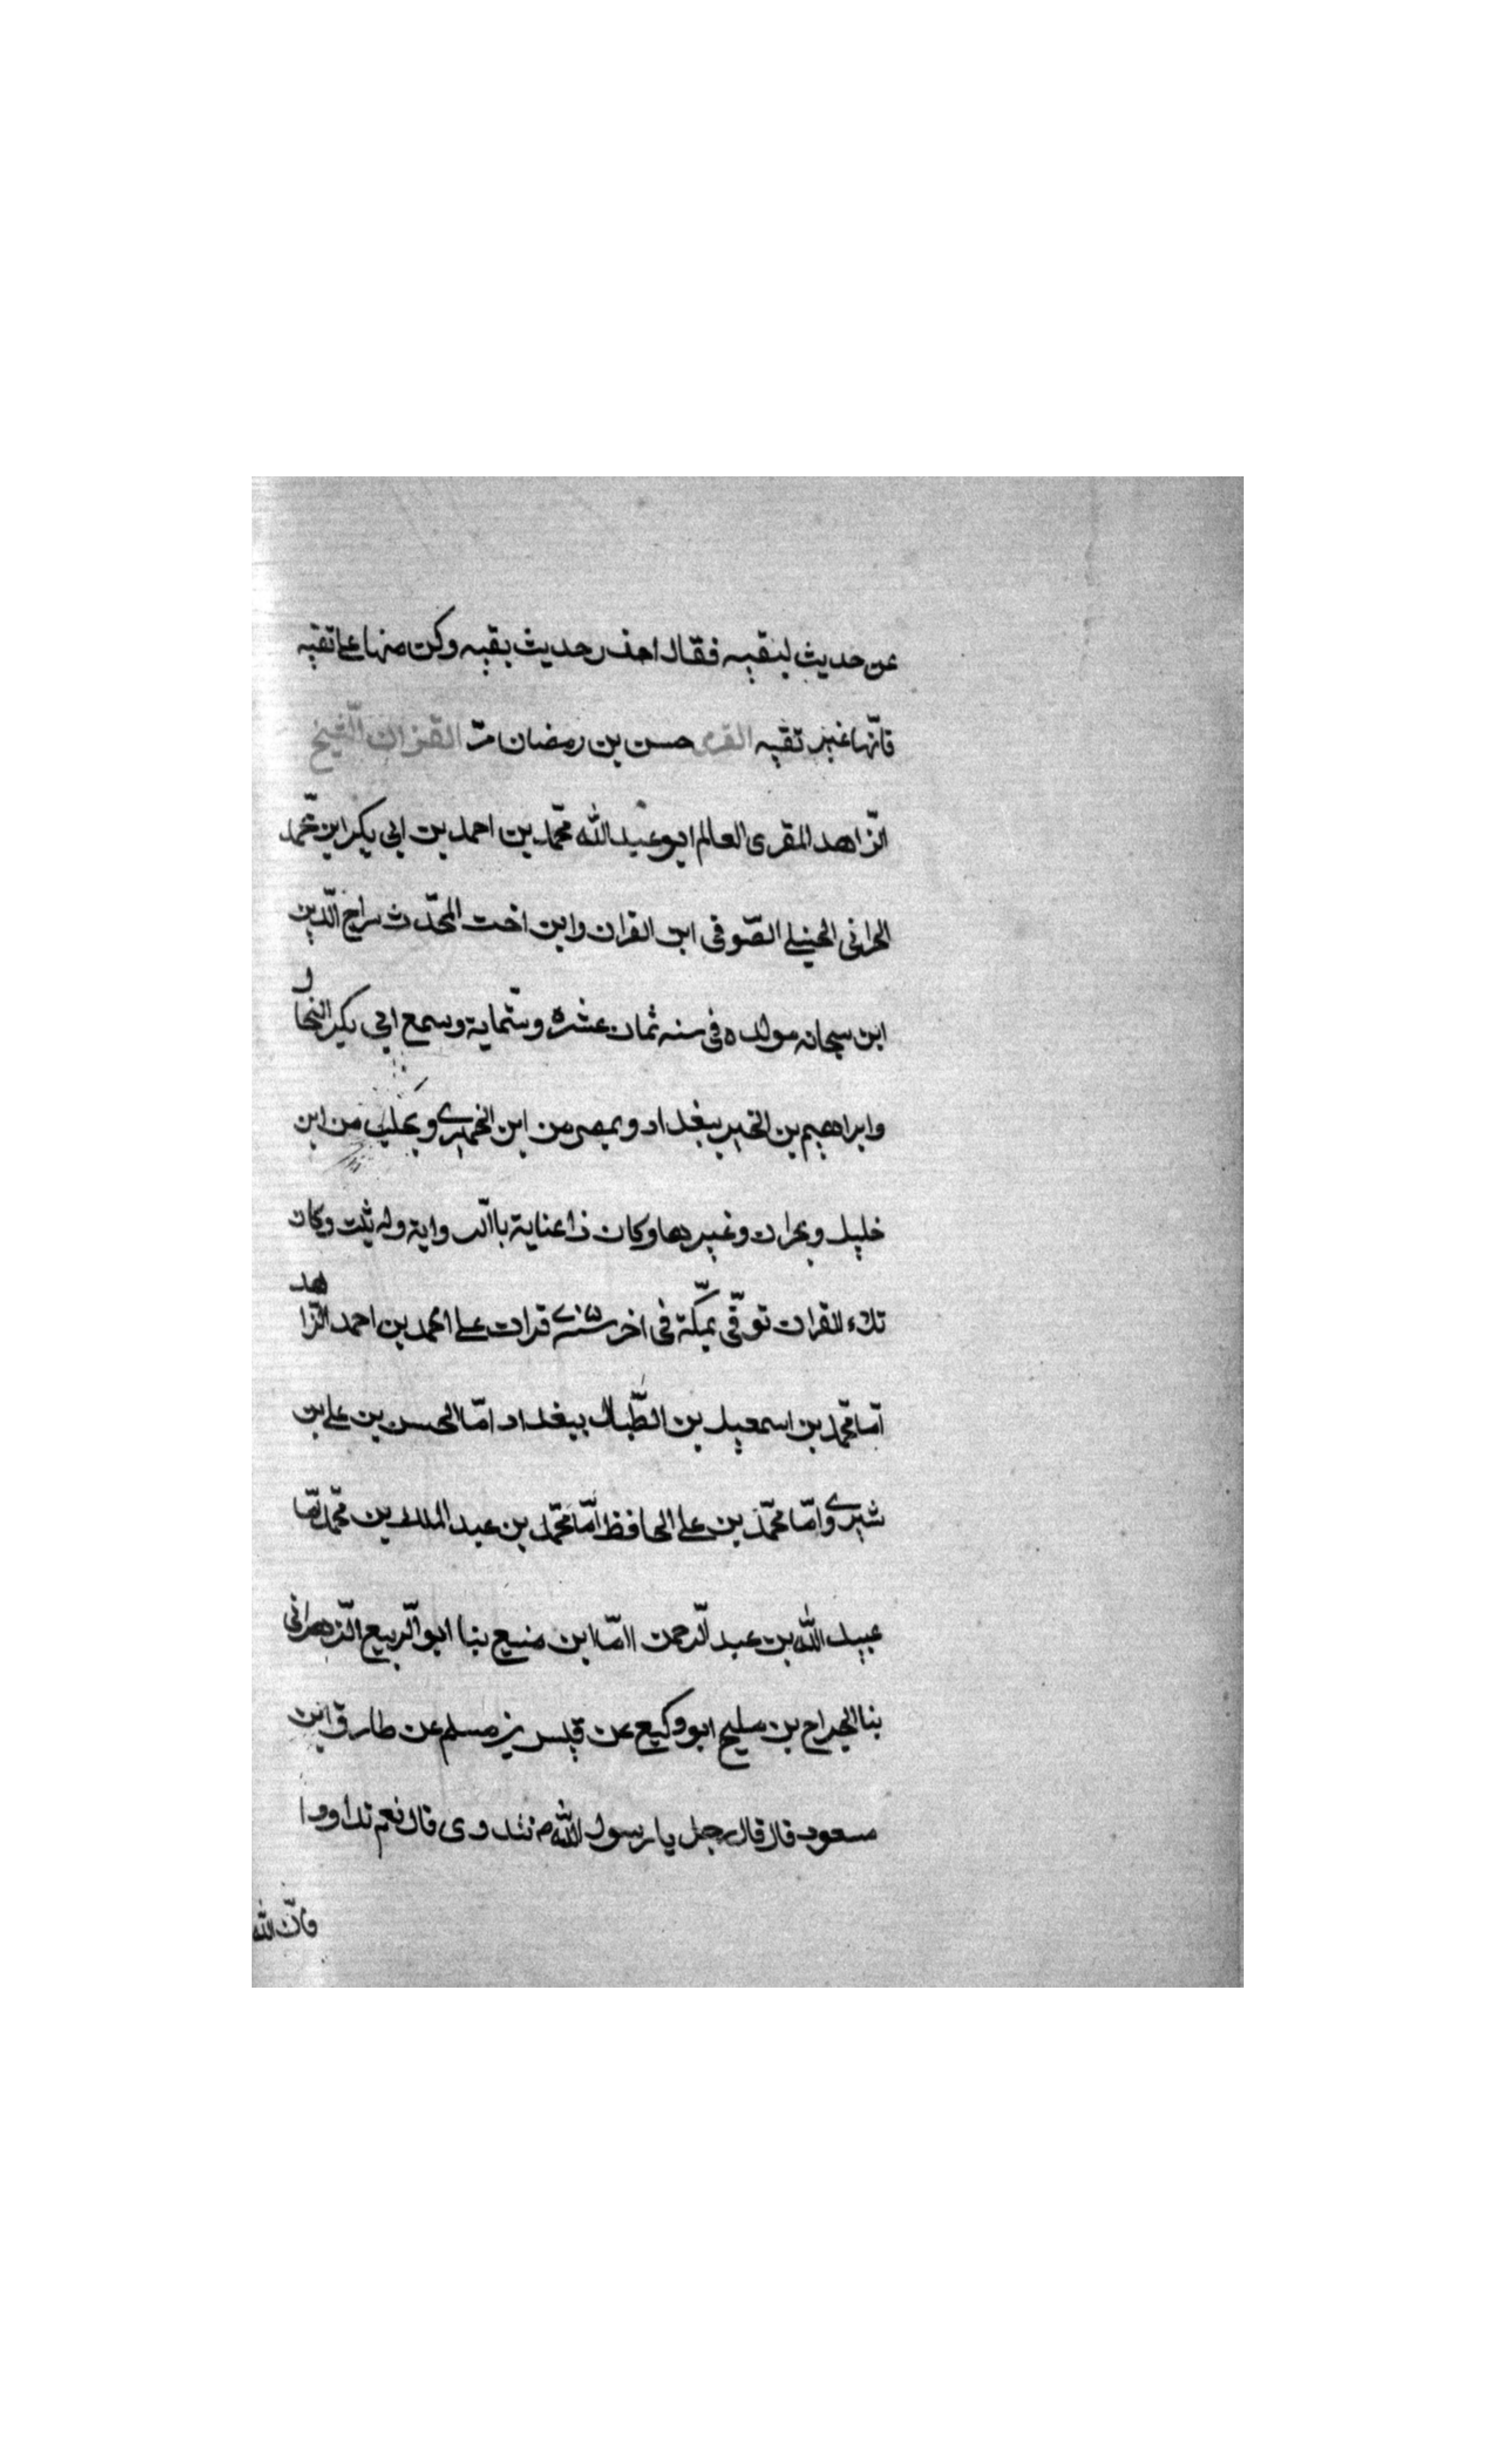 عن حديث لبقيه فقال احذر حديث بقيه وكن منها على تقيه
فانّها غير تقيّه القرى حسن بن رمضان مرّ القزان الشّيخ
الزّاهد المقرى العالم ابو عبد الله محمّد بن احمد بن ابى بكر ابن محمّد
الحرانى الحنبلے الصّوفى ابن القران وابن اخت المحدّث سراج الدّين
ابن سجانه مولده فى سنه ثمان عشره وستّماية وسمع ابى بكر النجار
وابراهيم بن الخير ببغداد وبمصر من ابن الخميرے وبحلب من ابن
خليل وبحران وغيرها وكان ذا عناية باالّرواية وله ثبت وكان
تلاء القران توفّى بمكّة فى اخر قرات على محمد بن احمد الزّاهد
امّا محمّد بن اسمعيل بن الطّبال ببغداد امّا الحسن بن على بن
شيرے وامّا محمّد بن على الحافظ امّا محمّد بن عبد الملك بن محمّد امّا
عبيد الله بن عبد الّرحمن امّا ابن منيع بنا ابو الّربيع الّزهرانى
بنا الجراح بن مليح ابو وكيع عن قيس بن مسلم عن طارق ابن
مسعود قال قال رجل يا رسول الله م نتداوى قال نعم تداووا
فانّ الله